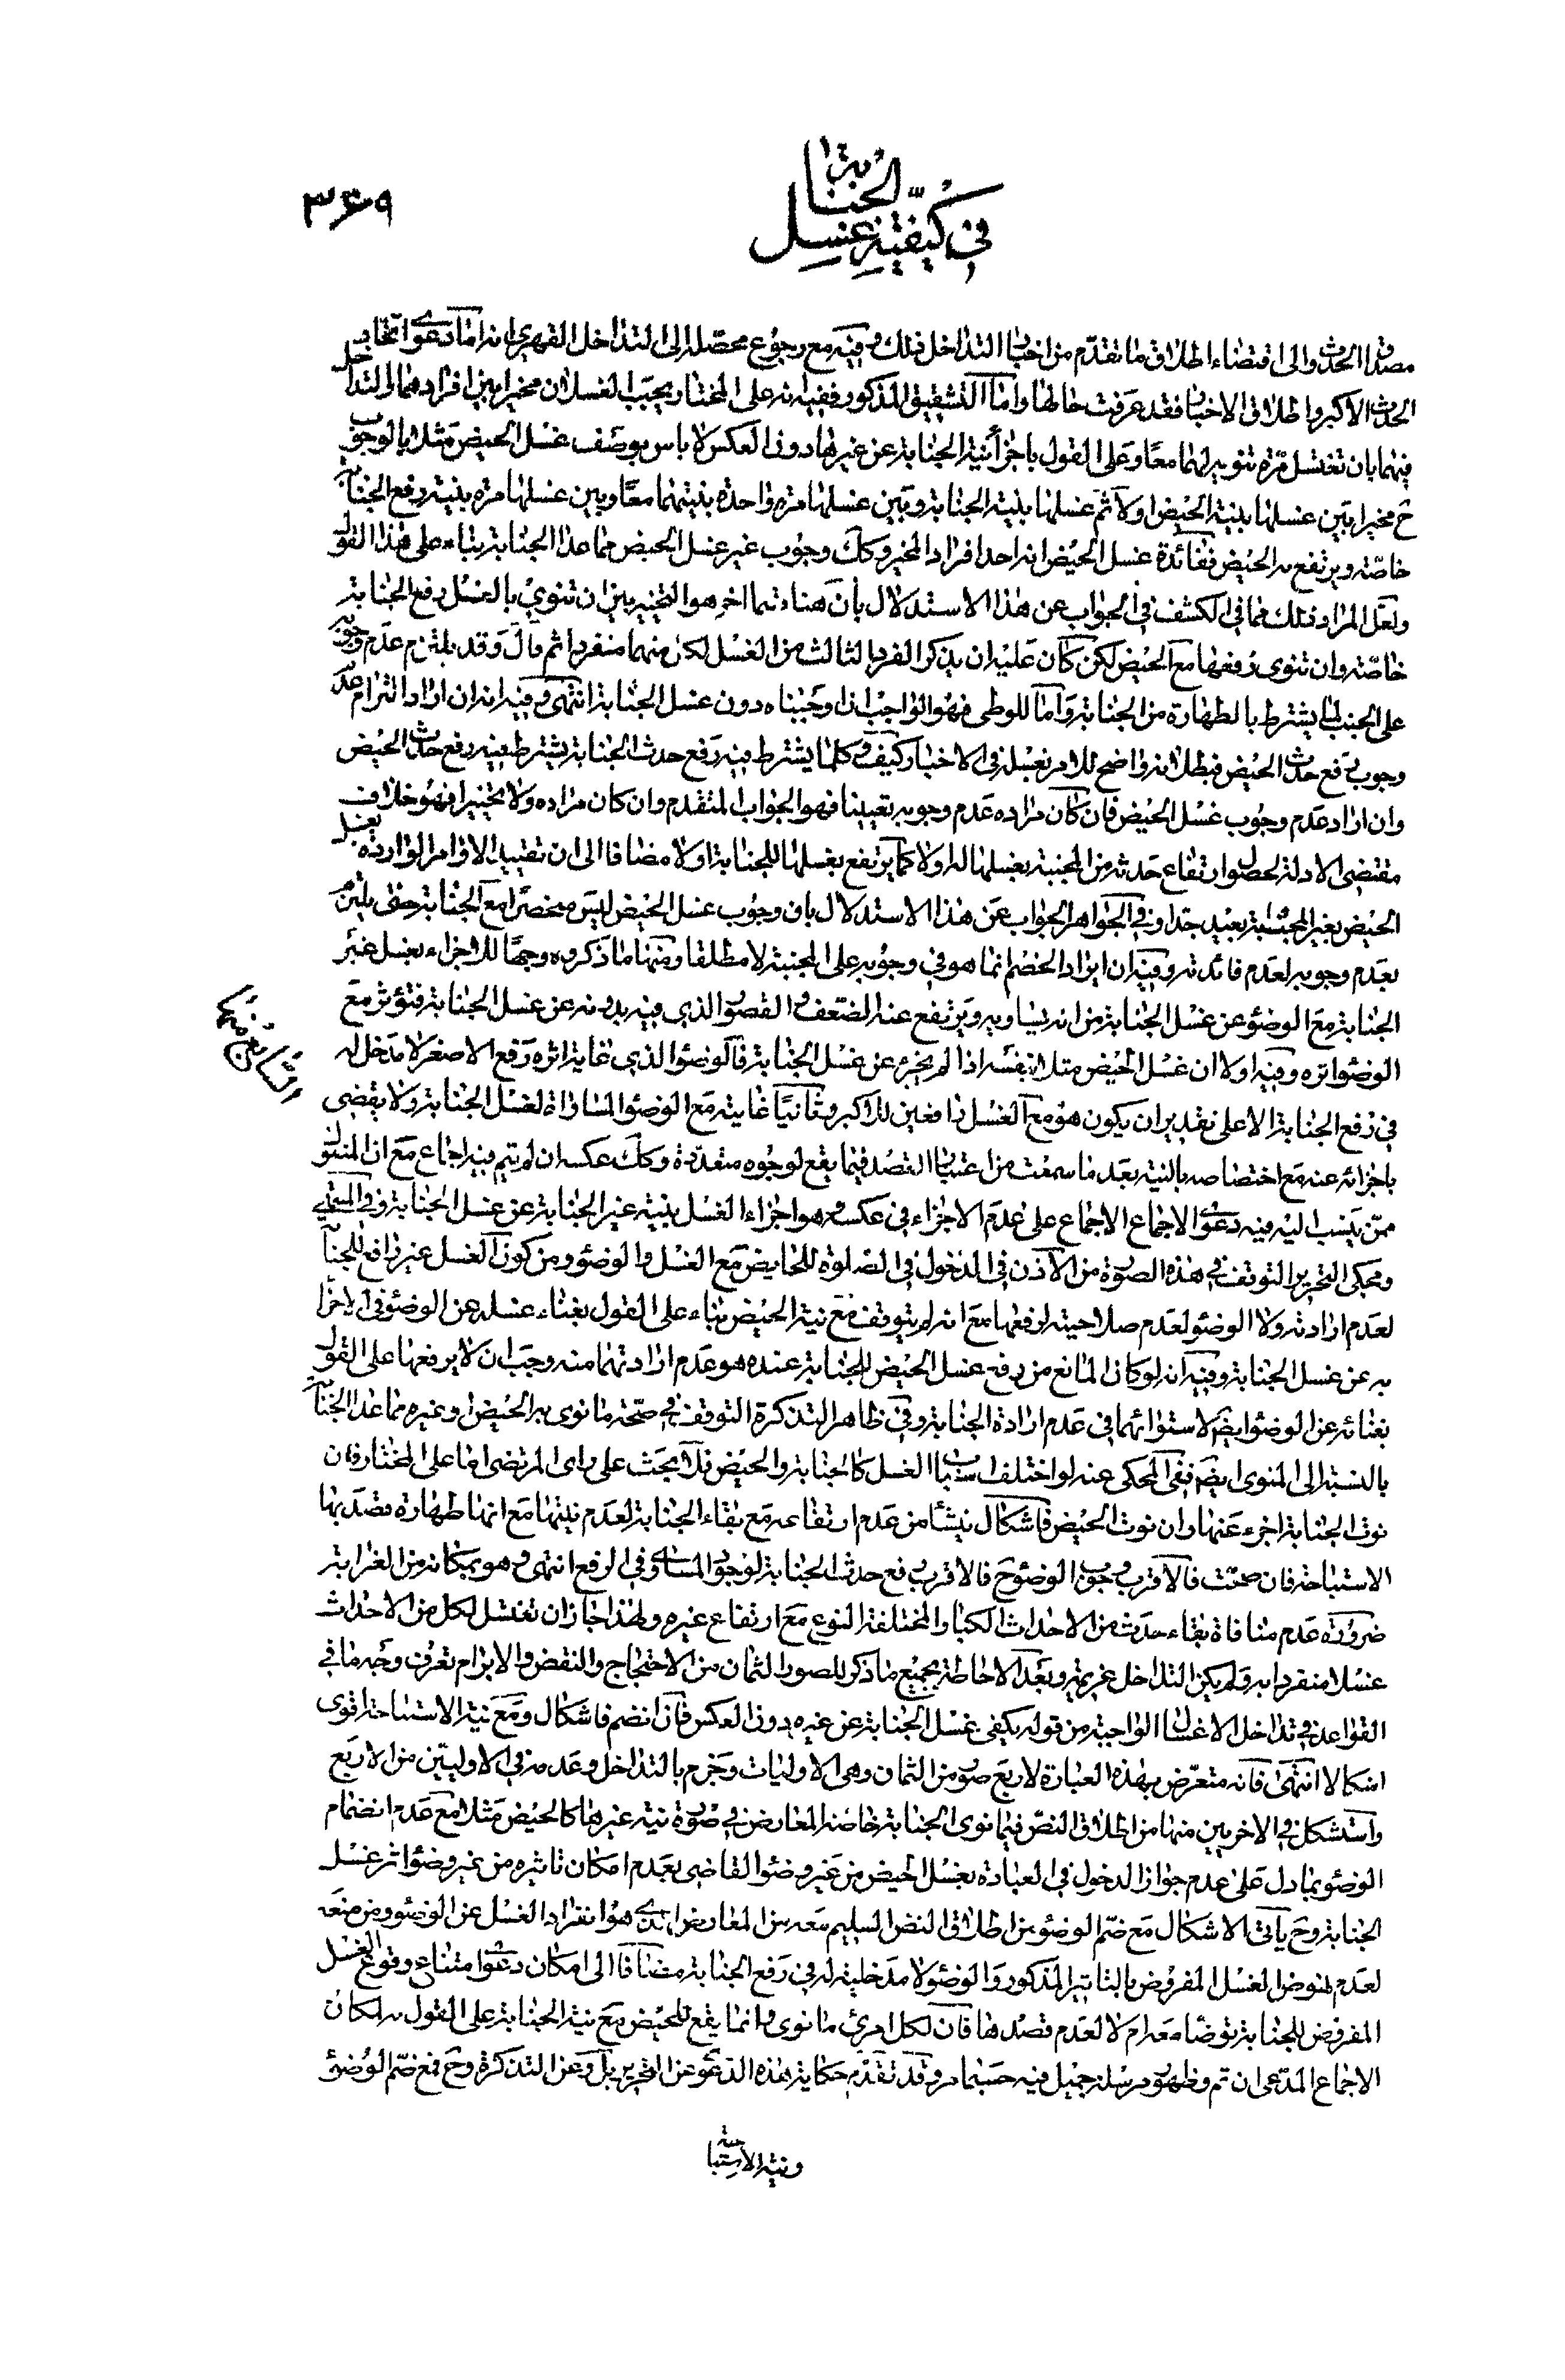 في كيفية غسل الجنابة
۳۶۹
مصداق الحدث والى اقتضاء اطلاق ما تقدم من اخبار التداخل ذلك وفيه مع رجوع محصّله الى التداخل القهري انه اما دعوى اتحاد
الحدث الاكبر واطلاق الاخبار فقد عرفت حالها واما التشقيق المذكور ففيه انه على المختار يجب الغسلان مخيرا بين افرادهما والتداخل
فيهما بان تغتسل مرّة تنويه لهما معا وعلى القول باجزاء نية الجنابة عن غيرها دون العكس لا باس بوصف غسل الحيض مثلا بالوجوب
ح مخيرا بين غسلها بنية الحيض اولا ثم غسلها بنية الجنابة وبين غسلها مرة واحدة بنيتهما معا وبين غسلها مرة بنية رفع الجنابة
خاصّة ويرتفع به الحيض ففائدة غسل الحيض انه احد افراد المخير وكك وجوب غير غسل الحيض مما عدا الجنابة بناء على هذا القول
ولعل المراد ذلك مما في الكشف في الجواب عن هذا الاستدلال بان هنا قسما اخر هو التخيير بين ان تنوي بالغسل رفع الجنابة
خاصّة وان تنوى رفعها مع الحيض لكن كان عليه ان يذكر الفرد الثالث من الغسل لكل منهما منفردا ثم قال وقد يلتزم عدم وجوبه
على الجنب لما يشترط بالطهارة من الجنابة واما للوطى فهو الواجب اذا وجبناه دون غسل الجنابة انتهى وفيه انه ان اراد التزام عدم
وجوب رفع حدث الحيض فبطلانه واضح للامر بغسله في الاخبار وكيف وكلما يشترط فيه رفع حدث الجنابة يشترط فيه رفع حدث الحيض
وان اراد عدم وجوب غسل الحيض فان كان مراده عدم وجوبه تعيينا فهو الجواب المتقدم وان كان مراده ولا تخييرا فهو خلاف
مقتضى الادلة لحصول ارتفاع حدثه من المجنبة بغسلها له اولا كما يرتفع بغسلها للجنابة اولا مضافا الى ان تقييد الاوامر الواردة بغسل
الحيض بغير المجنبة بعيد جدا وفي الجواهر الجواب عن هذا الاستدلال بان وجوب غسل الحيض ليس منحصرا مع الجنابة حتى يلتزم
بعدم وجوبه لعدم فائدته وفيه ان ايراد الخصم انما هو في وجوبه على المجنبة لا مطلقا ومنها ما ذكروه وجها للاجزاء بغسل غير
الجنابة مع الوضوء عن غسل الجنابة من انه يساويه ويرتفع عنه الضعف والقصور الذي فيه بدونه عن غسل الجنابة فتؤثر مع
الوضوء اثره وفيه اولا ان غسل الحيض مثلا بنفسه اذا لم يجزء عن غسل الجنابة فالوضوء الذي غاية اثره رفع الاصغر لا مدخل له
في رفع الجنابة الا على تقدير ان يكون هو مع الغسل رافعين للاكبر وثانيا غايته مع الوضوء المساواة لغسل الجنابة ولا يقضى
باجزائه عنه مع اختصاصه بالنية بعد ما سمعت من اعتبار القصد فيما يقع لوجوه متعددة وكك عكسه ان لم يتم فيه اجماع مع ان المنقول
ممّن ينسب اليه فيه دعوى الاجماع الاجماع على عدم الاجزاء في عكسه وهو اجزاء الغسل بنية غير الجنابة عن غسل الجنابة وفي المنتهى
ومحكى التحرير التوقف في هذه الصورة من الاذن في الدخول في الصلوة للحايض مع الغسل والوضوء ومن كون الغسل غير رافع للجنابة
لعدم ارادته ولا الوضوء لعدم صلاحيته لرفعها مع انه لم يتوقف مع نية الحيض بناء على القول بغناء غسله عن الوضوء في الاجزاء
به عن غسل الجنابة وفيه انه لو كان المانع من رفع غسل الحيض للجنابة عنده هو عدم ارادتهما منه وجب ان لا يرفعها على القول
بغنائه عن الوضوء ايضا لاستوائهما في عدم ارادة الجنابة وفي ظاهر التذكرة التوقف في صحّة ما نوى به الحيض او غيره مما عدا الجنابة
بالنسبة الى المنوى ايضا ففى المحكى عنه لو اختلف اسباب الغسل كالجنابة والحيض فلا بحث على راى المرتضى اما على المختار فان
نوت الجنابة اجزء عنها وان نوت الحيض فاشكال ينشأ من عدم ارتفاعه مع بقاء الجنابة لعدم نيتها مع انها طهارة قصد بها
الاستباحة فان صحّت فالاقرب وجوب الوضوء ح فالاقرب رفع حدث الجنابة لوجود المساوى في الرفع انتهى وهو بمكانة من الغرابة
ضرورة عدم منافاة بقاء حدث من الاحداث الكبار المختلفة النوع مع ارتفاع غيره ولهذا جاز ان تغتسل لكل من الاحداث
غسلا منفردا به ولم يكن التداخل عزيمة وبعد الاحاطة بجميع ما ذكر للصور الثمان من الاحتجاج والنقض والابرام تعرف وجه ما في
القواعد في تداخل الاغسال الواجبة من قوله يكفى غسل الجنابة عن غيره دون العكس فان انضم فاشكال ومع نية الاستباحة اقوى
اشكالا انتهى فانه متعرّض بهذه العبارة لاربع صور من الثمان وهى الاوليات وجزم بالتداخل وعدمه في الاوليين من الاربع
واستشكل في الاخريين منها من اطلاق النصّ فيما نوى الجنابة خاصة المعارض في صورة نية غيرها كالحيض مثلا مع عدم انضمام
الوضوء بما دل على عدم جواز الدخول في العبادة بغسل الحيض من غير وضوء القاضى بعدم امكان تاثيره من غير وضوء اثر غسل
الجنابة وح يأتى الاشكال مع ضم الوضوء من اطلاق النص السليم معه من المعارض الذي هو انفراد الغسل عن الوضوء ومن منعه
لعدم نهوض الغسل المفروض بالتاثير المذكور والوضوء لا مدخلية له في رفع الجنابة مضافا الى امكان دعوى امتناع وقوع الغسل
المفروض للجنابة توضأ معه ام لا لعدم قصدها فان لكل امرئ ما نوى وانما يقع للحيض مع نية الجنابة على القول به لمكان
الاجماع المدّعى ان تم وظهور مرسلة جميل فيه حسبما مر وقد تقدّم حكاية هذه الدعوى عن التحرير بل وعن التذكرة وح فمع ضمّ الوضوء
ونية الاستباحة